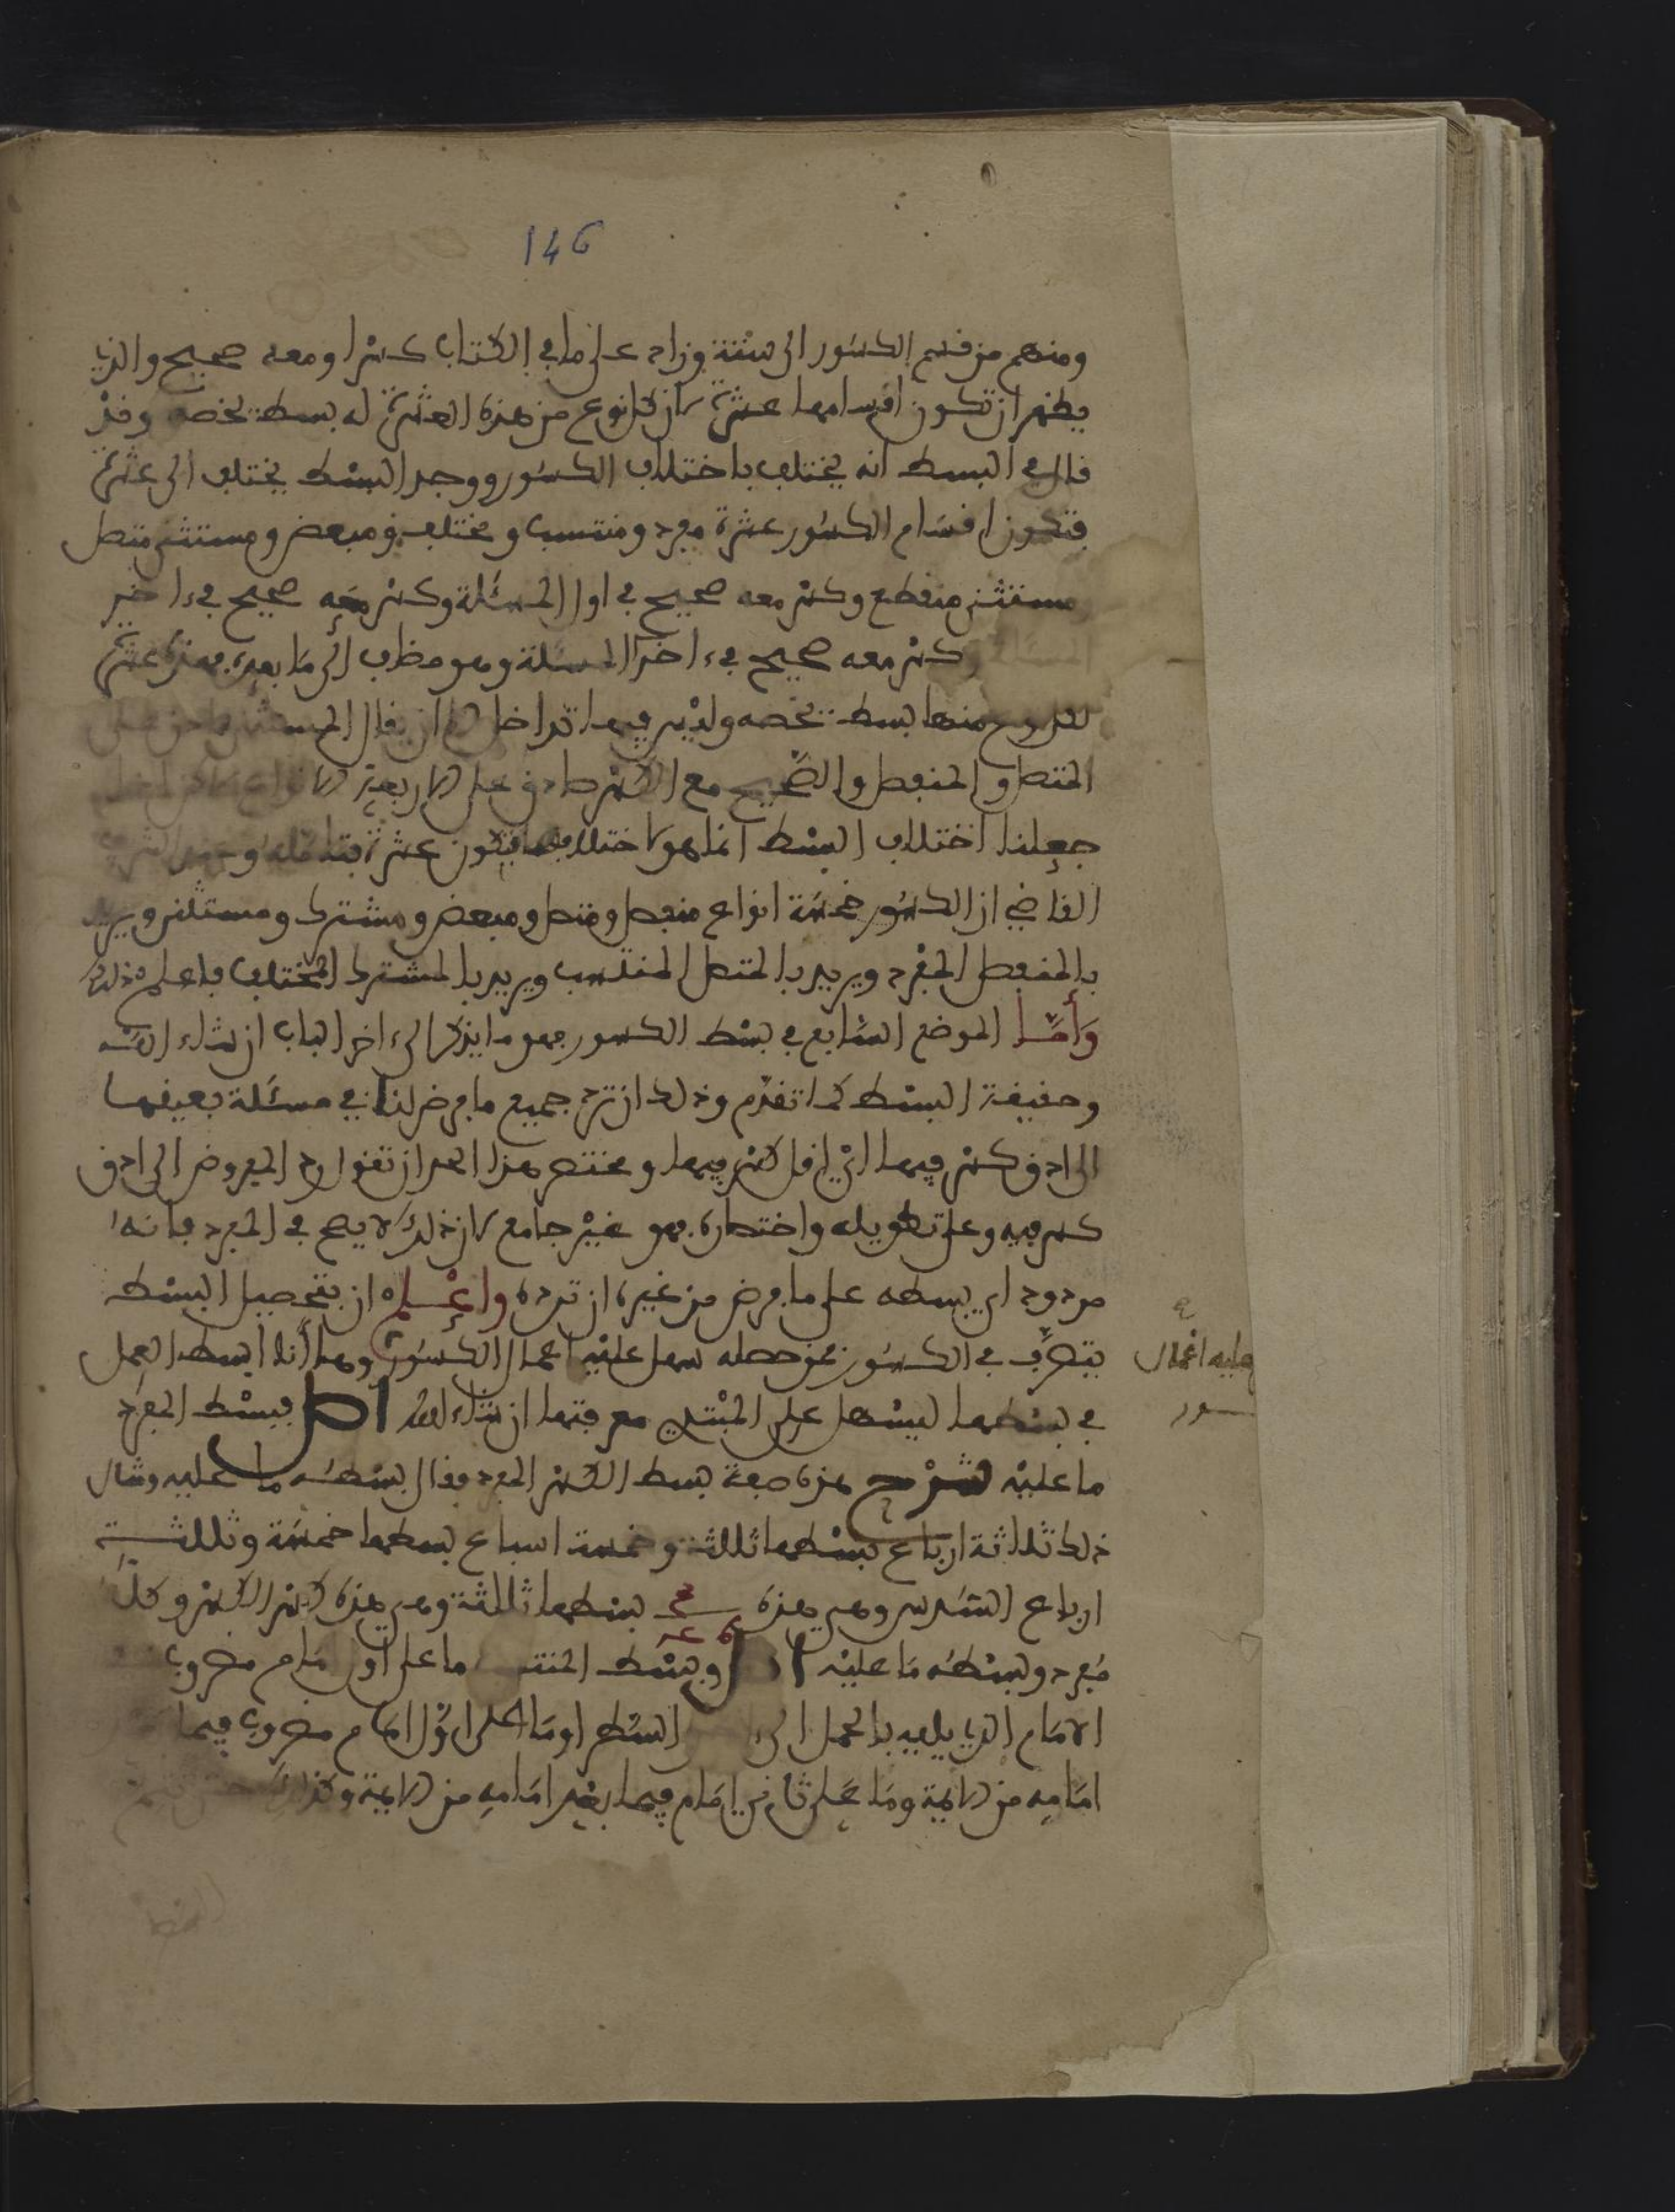 146
ومنهم من قسم الكسور الى ستة وزاد على ما في الكتاب كسرا ومعه صحيح والذي
يظهر ان تكون اقسامها عشرة لان كل نوع من هذه العشرة له بسط يخصه وقد
قال في البسط انه يختلف باختلاف الكسور ووجد البسط يختلف الى عشرة
فتكون اقسام الكسور عشرة مفرد ومنتسب ومختلف ومبعض ومستثنى متصل
مستثنى منقطع وكسر معه صحيح في اول المسئلة وكسر معه صحيح في ءاخر
المسئلة وكسر معه صحيح في ءاخر المسئلة وهو مضاف الى ما بعده فهذه عشرة
لكل نوع منها بسط يخصه وليس فيها تداخل لا ان يقال المستثنى صادق على
المتصل والمنفصل والصحيح مع الكسر صادق على الاربعة الانواع
جعلنا اختلاف البسط انما هو لاختلافها فتكون عشرة فتامله
القاضي ان الكسور خمسة انواع منفصل ومتصل ومبعض ومشترك ومستثنى ويريد
بالمنفصل المفرد ويريد بالمتصل المنتسب ويريد بالمشترك المختلف فاعلم ذلك
وأما الموضع السابع في بسط الكسور فهو ما يذكر الى ءاخر الباب ان شاء الله
وحقيقة البسط كما تقدم وذلك ان ترد جميع ما فرض لنا في مسئلة بعينها
الى ادق كسر فيها اي اقل كسر فيها ومختصر هذا الحد ان تقول رد المفروض الى ادق
كسر فيه وعلى تطويله واختصاره فهو غير جامع لان ذلك لا يصح في المفرد فانه
مردود اي بسطه على ما فرض من غير ان ترده واعلم ان بتحصيل البسط
يتصرف في الكسور فمن حصله سهل عليه اعمال الكسور وها أنا ابسط العمل
عليه اعمال
ـسور
في بسطها ليسهل على المبتدي معرفتها ان شاء الله اصل فبسط المفرد
ما عليه شرح هذه صفة بسط الكسر المفرد فقال بسطه ما عليه ومثال
ذلك ثلاثة ارباع بسطها ثلاثة وخمسة اسباع بسطها خمسة وثلاثة
ارباع السدس وهي هذه بسطها ثلاثة وهي هذه كسر الكسر وكل
مفرد وبسطه ما عليه اصل وبسط المنتسب ما على اول امام مضروب
الامام الذي يليه بالحمل الى ءاخر السطر او ما على اول امام مضروب فيما
امامه من الايمة وما على ثاني امام فيما بعد امامه من الايمة وكذلك حتى تتم